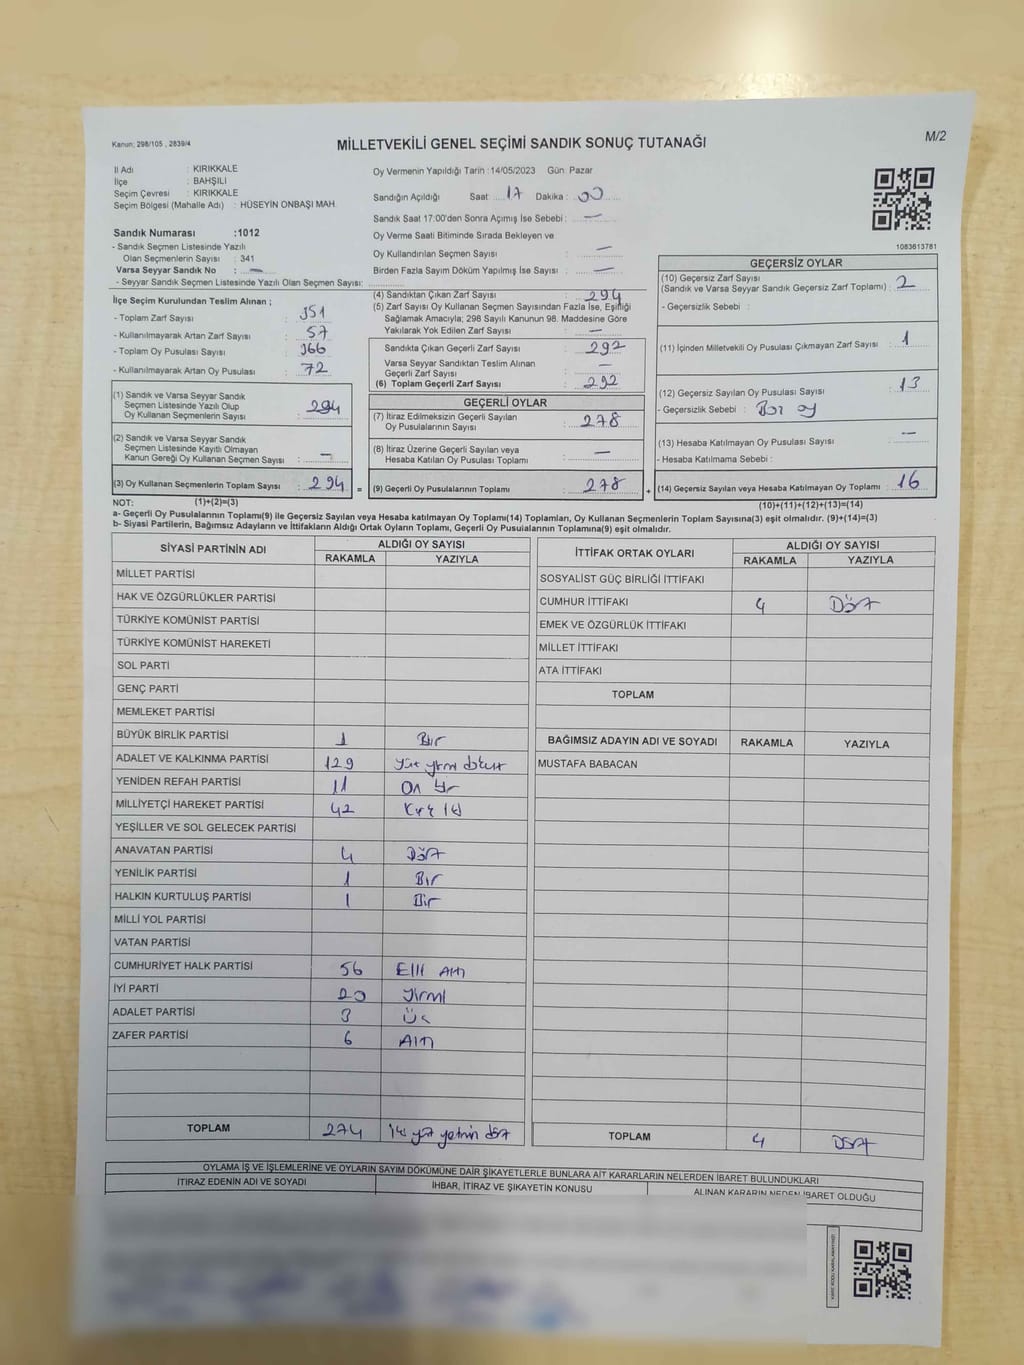 Kanun; 298/105 , 2839/4
MİLLETVEKİLİ GENEL SEÇİMİ SANDIK SONUÇ TUTANAĞI
M/2
İl Adı : KIRIKKALE
İlçe : BAHŞILI
Seçim Çevresi : KIRIKKALE
Seçim Bölgesi (Mahalle Adı) : HÜSEYİN ONBAŞI MAH.
Oy Vermenin Yapıldığı Tarih :14/05/2023 Gün: Pazar
Sandığın Açıldığı Saat :.....17 Dakika :...00
Sandık Saat 17:00'den Sonra Açımış İse Sebebi : —
Oy Verme Saati Bitiminde Sırada Bekleyen ve
Oy Kullandırılan Seçmen Sayısı : —
Birden Fazla Sayım Döküm Yapılmış İse Sayısı : —
1083613781
Sandık Numarası :1012
- Sandık Seçmen Listesinde Yazılı
Olan Seçmenlerin Sayısı : 341
Varsa Seyyar Sandık No : —
- Seyyar Sandık Seçmen Listesinde Yazılı Olan Seçmen Sayısı:
İlçe Seçim Kurulundan Teslim Alınan ;
- Toplam Zarf Sayısı : 351
- Kullanılmayarak Artan Zarf Sayısı : 57
- Toplam Oy Pusulası Sayısı : 366
- Kullanılmayarak Artan Oy Pusulası : 72
(1) Sandık ve Varsa Seyyar Sandık
Seçmen Listesinde Yazılı Olup
Oy Kullanan Seçmenlerin Sayısı : 294
(2) Sandık ve Varsa Seyyar Sandık
Seçmen Listesinde Kayıtlı Olmayan
Kanun Gereği Oy Kullanan Seçmen Sayısı : —
(3) Oy Kullanan Seçmenlerin Toplam Sayısı : 294
(4) Sandıktan Çıkan Zarf Sayısı : 294
(5) Zarf Sayısı Oy Kullanan Seçmen Sayısından Fazla İse, Eşitliği
Sağlamak Amacıyla; 298 Sayılı Kanunun 98. Maddesine Göre
Yakılarak Yok Edilen Zarf Sayısı : —
Sandıkta Çıkan Geçerli Zarf Sayısı : 292
Varsa Seyyar Sandıktan Teslim Alınan
Geçerli Zarf Sayısı : —
(6) Toplam Geçerli Zarf Sayısı : 292
GEÇERLİ OYLAR
(7) İtiraz Edilmeksizin Geçerli Sayılan
Oy Pusulalarının Sayısı : 278
(8) İtiraz Üzerine Geçerli Sayılan veya
Hesaba Katılan Oy Pusulası Toplamı : —
= (9) Geçerli Oy Pusulalarının Toplamı : 278
GEÇERSİZ OYLAR
(10) Geçersiz Zarf Sayısı
(Sandık ve Varsa Seyyar Sandık Geçersiz Zarf Toplamı) : 2
- Geçersizlik Sebebi :
(11) İçinden Milletvekili Oy Pusulası Çıkmayan Zarf Sayısı : 1
(12) Geçersiz Sayılan Oy Pusulası Sayısı : 13
- Geçersizlik Sebebi : Boş oy
(13) Hesaba Katılmayan Oy Pusulası Sayısı : —
- Hesaba Katılmama Sebebi :
+ (14) Geçersiz Sayılan veya Hesaba Katılmayan Oy Toplamı : 16
NOT: (1)+(2)=(3)
(10)+(11)+(12)+(13)=(14)
a- Geçerli Oy Pusulasının Toplamı(9) ile Geçersiz Sayılan veya Hesaba katılmayan Oy Toplamı(14) Toplamları, Oy Kullanan Seçmenlerin Toplam Sayısına(3) eşit olmalıdır. (9)+(14)=(3)
b- Siyasi Partilerin, Bağımsız Adayların ve İttifakların Aldığı Ortak Oyların Toplamı, Geçerli Oy Pusulalarının Toplamına(9) eşit olmalıdır.
SİYASİ PARTİNİN ADI ALDIĞI OY SAYISI
RAKAMLA YAZIYLA
MİLLET PARTİSİ
HAK VE ÖZGÜRLÜKLER PARTİSİ
TÜRKİYE KOMÜNİST PARTİSİ
TÜRKİYE KOMÜNİST HAREKETİ
SOL PARTİ
GENÇ PARTİ
MEMLEKET PARTİSİ
BÜYÜK BİRLİK PARTİSİ 1 Bir
ADALET VE KALKINMA PARTİSİ 129 Yüz yirmi dokuz
YENİDEN REFAH PARTİSİ 11 On bir
MİLLİYETÇİ HAREKET PARTİSİ 42 Kırk iki
YEŞİLLER VE SOL GELECEK PARTİSİ
ANAVATAN PARTİSİ 4 Dört
YENİLİK PARTİSİ 1 Bir
HALKIN KURTULUŞ PARTİSİ 1 Bir
MİLLİ YOL PARTİSİ
VATAN PARTİSİ
CUMHURİYET HALK PARTİSİ 56 Elli Altı
İYİ PARTİ 20 Yirmi
ADALET PARTİSİ 3 Üç
ZAFER PARTİSİ 6 Altı
TOPLAM 274 iki yüz yetmiş dört
İTTİFAK ORTAK OYLARI ALDIĞI OY SAYISI
RAKAMLA YAZIYLA
SOSYALİST GÜÇ BİRLİĞİ İTTİFAKI
CUMHUR İTTİFAKI 4 Dört
EMEK VE ÖZGÜRLÜK İTTİFAKI
MİLLET İTTİFAKI
ATA İTTİFAKI
TOPLAM
BAĞIMSIZ ADAYIN ADI VE SOYADI RAKAMLA YAZIYLA
MUSTAFA BABACAN
TOPLAM 4 Dört
OYLAMA İŞ VE İŞLEMLERİNE VE OYLARIN SAYIM DÖKÜMÜNE DAİR ŞİKAYETLERLE BUNLARA AİT KARARLARIN NELERDEN İBARET BULUNDUKLARI
İTİRAZ EDENİN ADI VE SOYADI İHBAR, İTİRAZ VE ŞİKAYETİN KONUSU ALINAN KARARIN NEDEN İBARET OLDUĞU